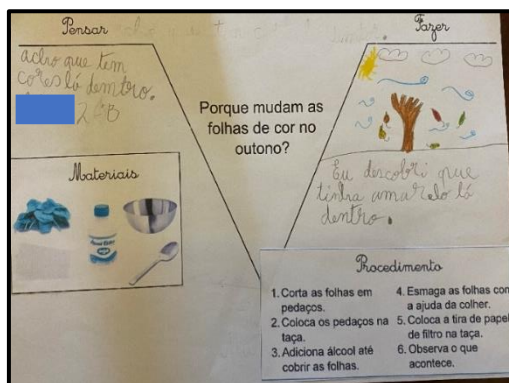 Pensar
acho que tem
cores lá demtro.
2ºB
Materiais
Porque mudam as
folhas de cor no
outono?
Fazer
Eu descobri que
tinha amarelo lá
dentro.
Procedimento
1. Corta as folhas em
pedaços.
2. Coloca os pedaços na
taça.
3. Adiciona álcool até
cobrir as folhas.
4. Esmaga as folhas com
a ajuda da colher.
5. Coloca a tira de papel
de filtro na taça.
6. Observa o que
acontece.